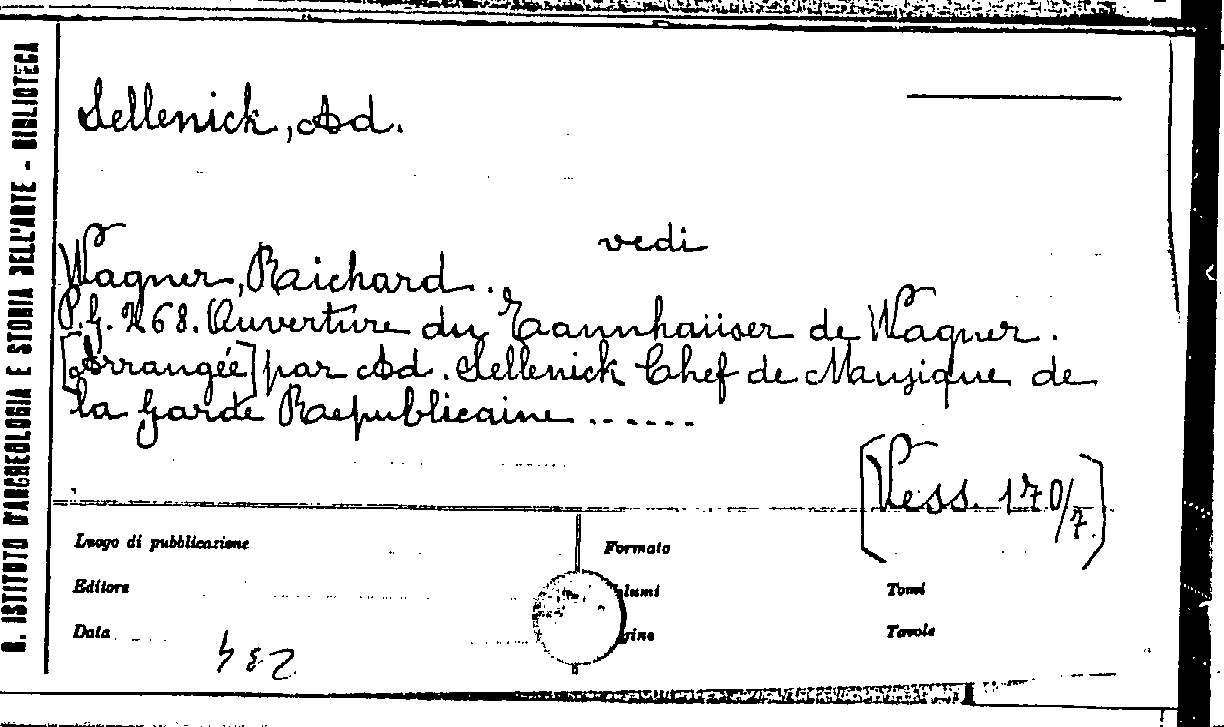 R. ISTITUTO D'ARCHEOLOGIA E STORIA DELL'ARTE - BIBLIOTECA
Sellenick, Ad.
vedi
Wagner, Richard.
P.G. 268. Ouverture du Tannhaüser de Wagner.
[Arrangée] par Ad. Sellenick Chef de Musique de
la Garde Republicaine ......
[Vess. 170/7.]
Luogo di pubblicazione
Formato
Editore
lumi
Tomi
Data
gine
Tavole